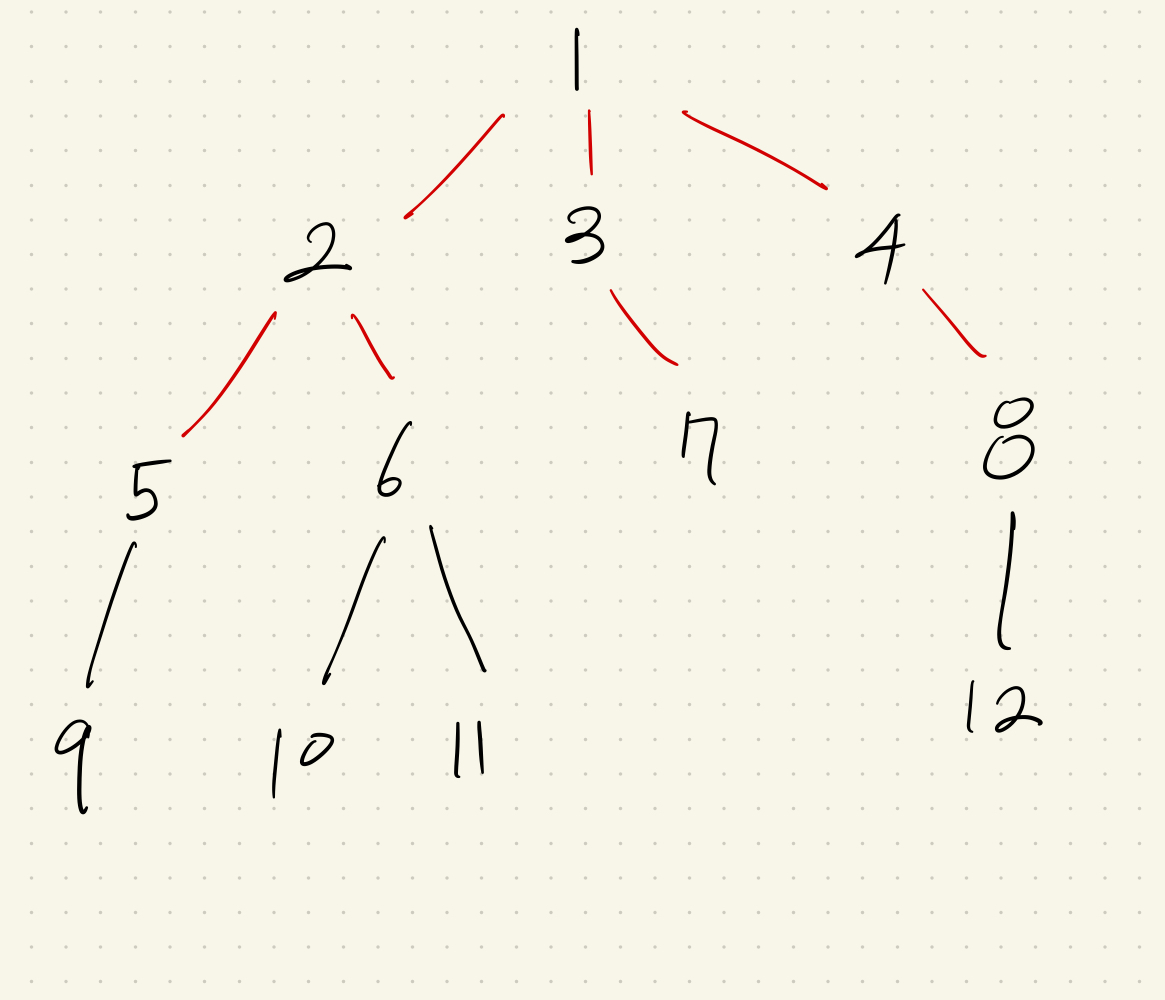 1
2 3 4
5 6 7 8
9 10 11 12